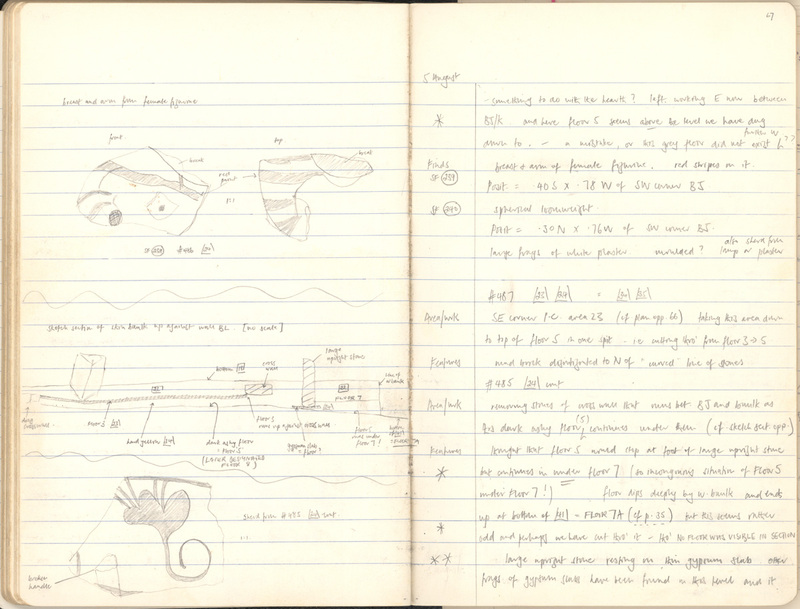 breast and arm from female figurine
front
top
breast
breast
red paint
1:1
SF 239 #485 24
sketch section of skin baulk up against wall BL. [no scale]
large upright stone
bottom
cross wall
FLOOR 7
line of w baulk
floor 5
hard yellow
dark ashy floor = FLOOR 5
(LATER DESIGNATED FLOOR 8)
floor 5 runs up against cross wall
gypsum slabs = floor?
floor 5 runs under floor 7!
sherd from #485 24 cont
1:1
broken handle
67
5 August
- something to do with the hearth? left working E now between
* BJ/K and here floor 5 seems above the level we have dug
down to. - a mistake, or this grey floor did not exist further W??
Finds breast & arm of female figurine. red stripes on it.
SF 239 Posit = .40 S x .78 W of SW corner BJ
SF 240 spherical loomweight
Posit = .30 N x .76 W of SW corner BJ.
large frags of white plaster moulded? also sherd from lamp or plaster
#487
Area/work SE corner i.e. area 23 (cf plan opp. 66) taking this area down
to top of floor 5 in one spit. - i.e cutting thro' from floor 3 → 5
Features mud brick disintegrated to N of "curved" line of stones
#485 24 cont
Area/wk removing stones of cross wall that runs bet. BJ and baulk as
this dark ashy floor (5) continues under them (cf sketch sect opp.)
Features thought that floor 5 would stop at foot of large upright stone
* but continues in under floor 7 (so incongruous situation of FLOOR 5
under FLOOR 7!) floor dips deeply by W. baulk and ends
up at bottom of = FLOOR 7A (cf p. 35) but this seems rather
* odd and perhaps we have cut thro' it - tho' NO FLOOR WAS VISIBLE IN SECTION
** large upright stone resting on thin gypsum slabs other
frags of gypsum slabs have been found in this level and it